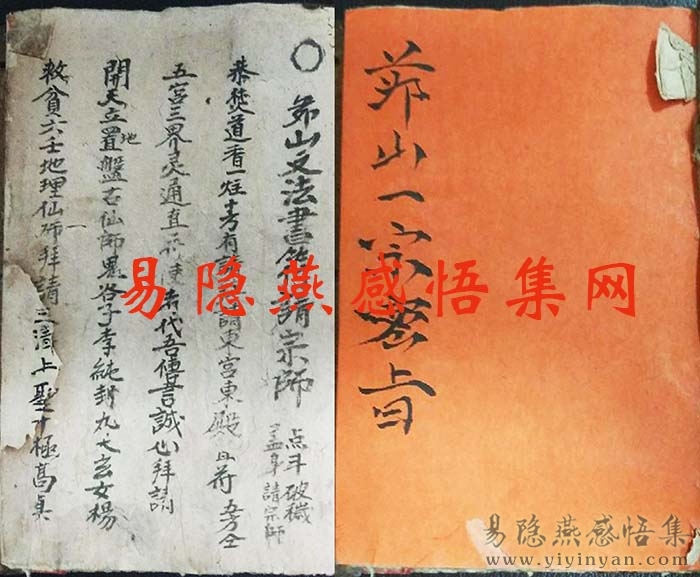 茅山文法書符請宗師
点斗破穢
蓋身請宗師
恭焚道香一炷十方有請請東宮東殿
五宮三界灵通直代吾傳言誠心拜請
開天立地置盤古仙師鬼谷子李純封九天玄女楊
救貧六壬地理仙師拜請三清上聖十極高真
茅山一宗密旨
易隐燕感悟集网
易隐燕感悟集
www.yiyinyan.com